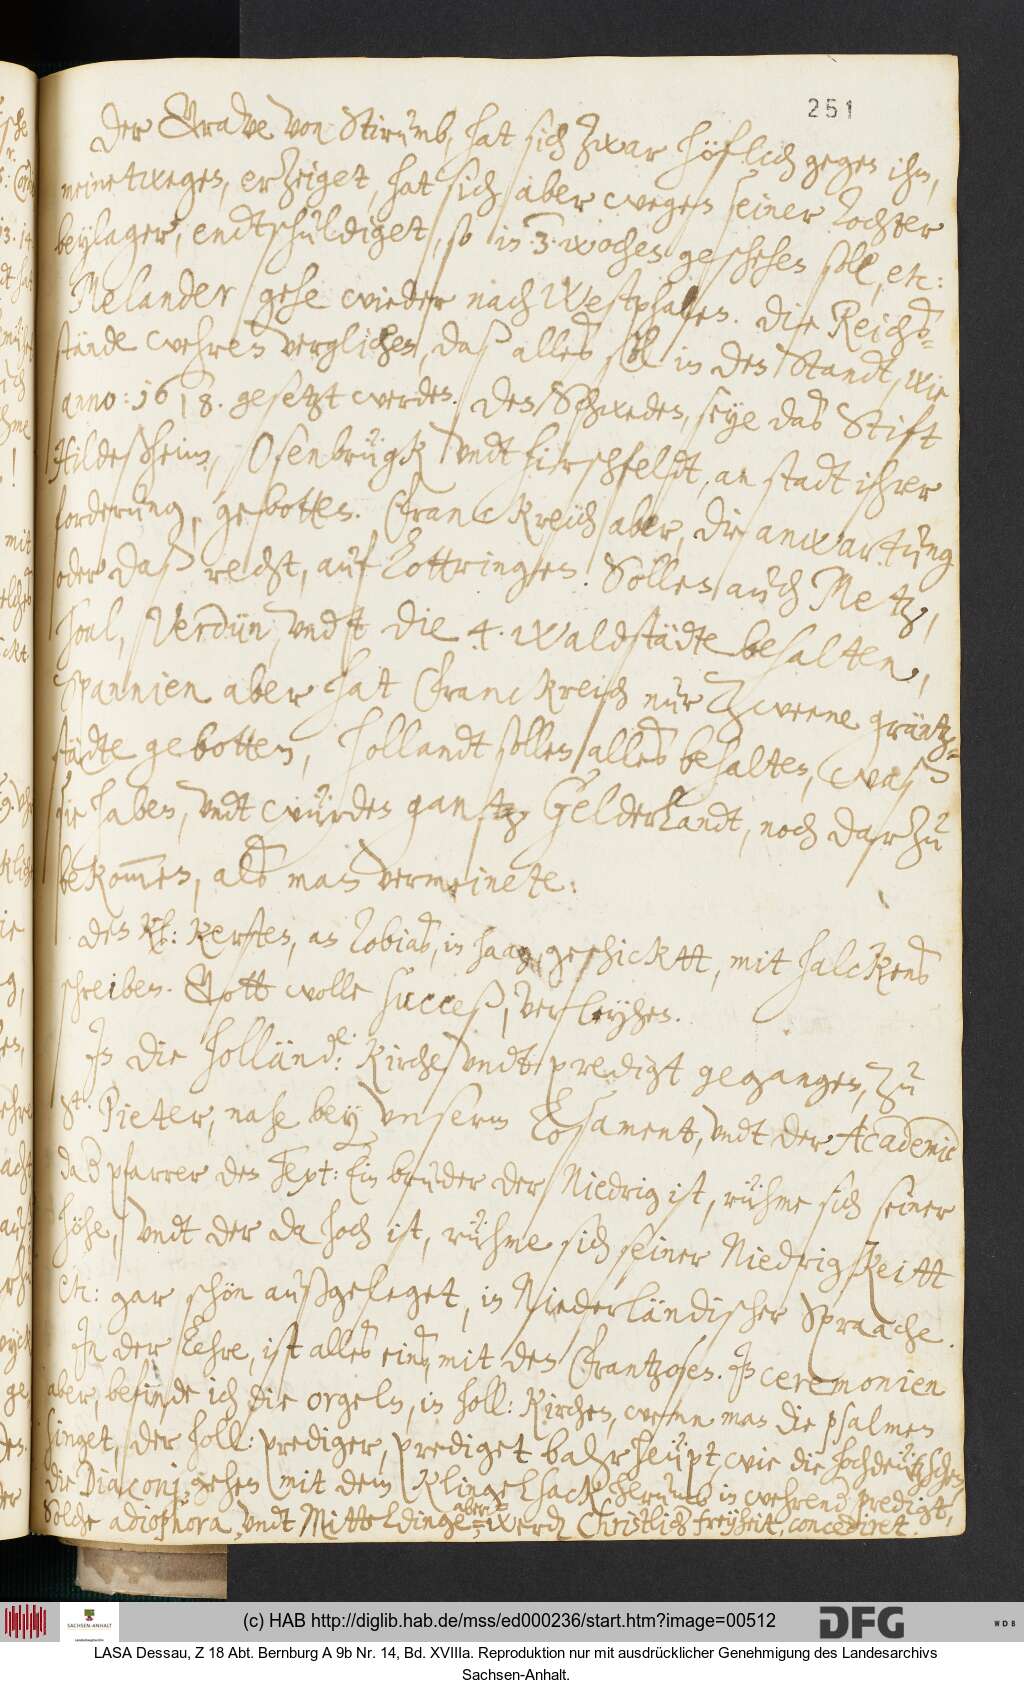 251
Der Grave von Stirumb, hat sich zwar höflich gegen ihn,
meinetwegen, erzeiget, hat sich aber wegen seiner Tochter
beylager, endtschuldiget, so in 3 wochen geschehen soll, etc:
Melander gehe wieder nach Westphalen. Die Reichs=
stände wehren verglichen, daß alles soll in den Standt, wie
anno: 1618. gesetzt werden. Den Schweden, seye das Stift
Hildesheim, Osenbrügk vndt Hirschfeldt, an stadt ihrer
forderung, gebotten. Franckreich aber, die anwartung
oder daß recht, auf Lottringen. Sollen auch Metz,
Toul, Verdün, vndt die 4. waldstädte behalten,
Spannien aber hat Franckreich nur Zweene gräntz=
städte gebotten, Hollandt sollen alles behalten, waß
sie haben, vndt würden gantz Gelderlandt, noch darzu
bekommen, als man vermeinete:
Den Kersten, an Tobias, in Haag geschicktt, mit Falckens
schreiben. Gott wolle succeß, verleyhen.
In die Holländ: Kirche vndt predigt gegangen, zu
St. Pieter, nahe bey vnserm Losament, vndt der Academie
daß pfarrer den Text: Ein bruder der Niedrig ist, rühme sich seiner
Höhe, vndt der da hoch ist, rühme sich seiner Niedrigkeitt
etc: gar schön außgeleget, in Niederländischer Spraache.
In der Lehre, ist alles eins, mit den Frantzosen. In ceremonien
aber, befinde ich die orgeln, in Holl: Kirchen, wenn man die psalmen
singet, der Holl: prediger, prediget bahrheüpt, wie die hochdeützschen
die Diaconj gehen mit dem Klingelsack herumb in wehrend predigt,
Solche adiophora, vndt Mitteldinge aber werd Christlich freyheit, concediret.
(c) HAB http://diglib.hab.de/mss/ed000236/start.htm?image=00512
SACHSEN-ANHALT
DFG
WDB
LASA Dessau, Z 18 Abt. Bernburg A 9b Nr. 14, Bd. XVIIIa. Reproduktion nur mit ausdrücklicher Genehmigung des Landesarchivs
Sachsen-Anhalt.